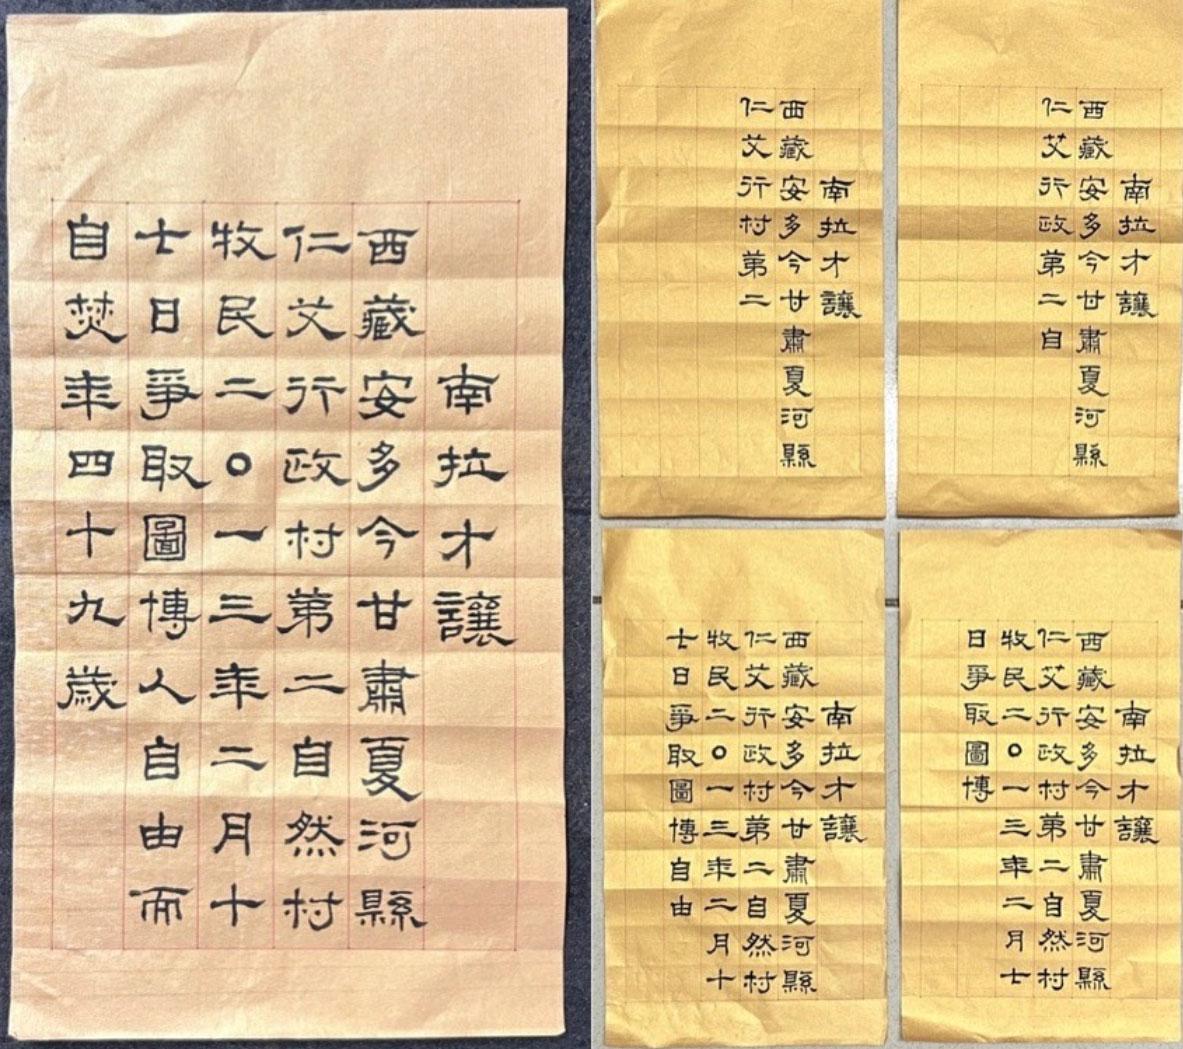 南拉才讓
西藏安多今甘肅夏河縣
仁艾行政村第二自然村
牧民二〇一三年二月十
七日爭取圖博人自由而
自焚年四十九歲
南拉才讓
西藏安多今甘肅夏河縣
仁艾行村第二
南拉才讓
西藏安多今甘肅夏河縣
仁艾行政第二自
南拉才讓
西藏安多今甘肅夏河縣
仁艾行政村第二自然村
牧民二〇一三年二月十
七日爭取圖博自由
南拉才讓
西藏安多今甘肅夏河縣
仁艾行政村第二自然村
牧民二〇一三年二月七
日爭取圖博